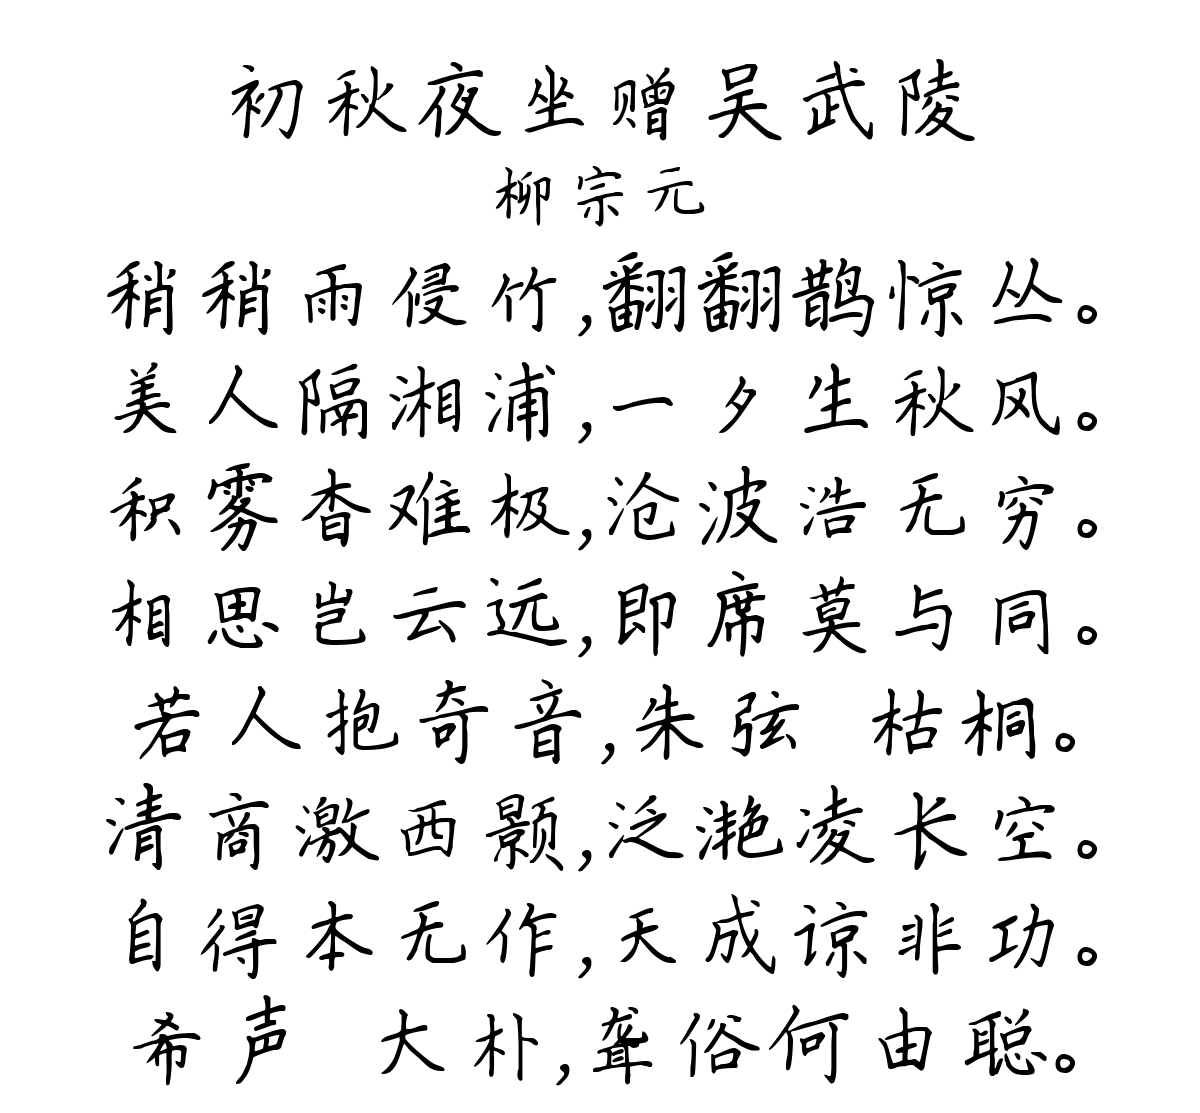 初秋夜坐赠吴武陵
柳宗元
稍稍雨侵竹,翻翻鹊惊丛。
美人隔湘浦,一夕生秋风。
积雾杳难极,沧波浩无穷。
相思岂云远,即席莫与同。
若人抱奇音,朱弦 枯桐。
清商激西颢,泛滟凌长空。
自得本无作,天成谅非功。
希声 大朴,聋俗何由聪。